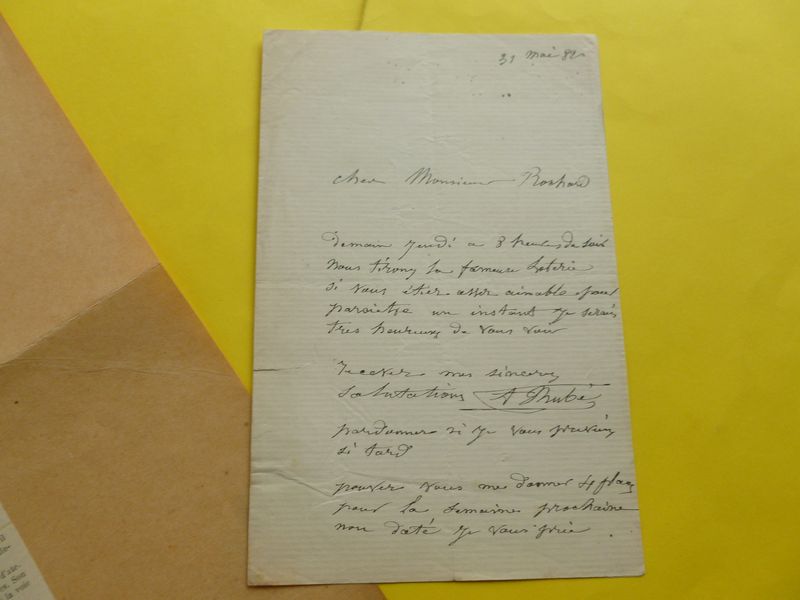 31 mai 82
cher Monsieur
demain jeudi a 8 heures du soir
nous tirons la fameuse Loterie
si vous étier assez aimable pour
paroitre un instant je serais
tres heureux de vous voir
recever mes sinceres
salutations A Rubé
pardonner si je vous previens
si tard
pouver vous me donner 4 plac
pour la semaine prochaine
non daté je vous prie
il
d'ate-
s. Son
la voie